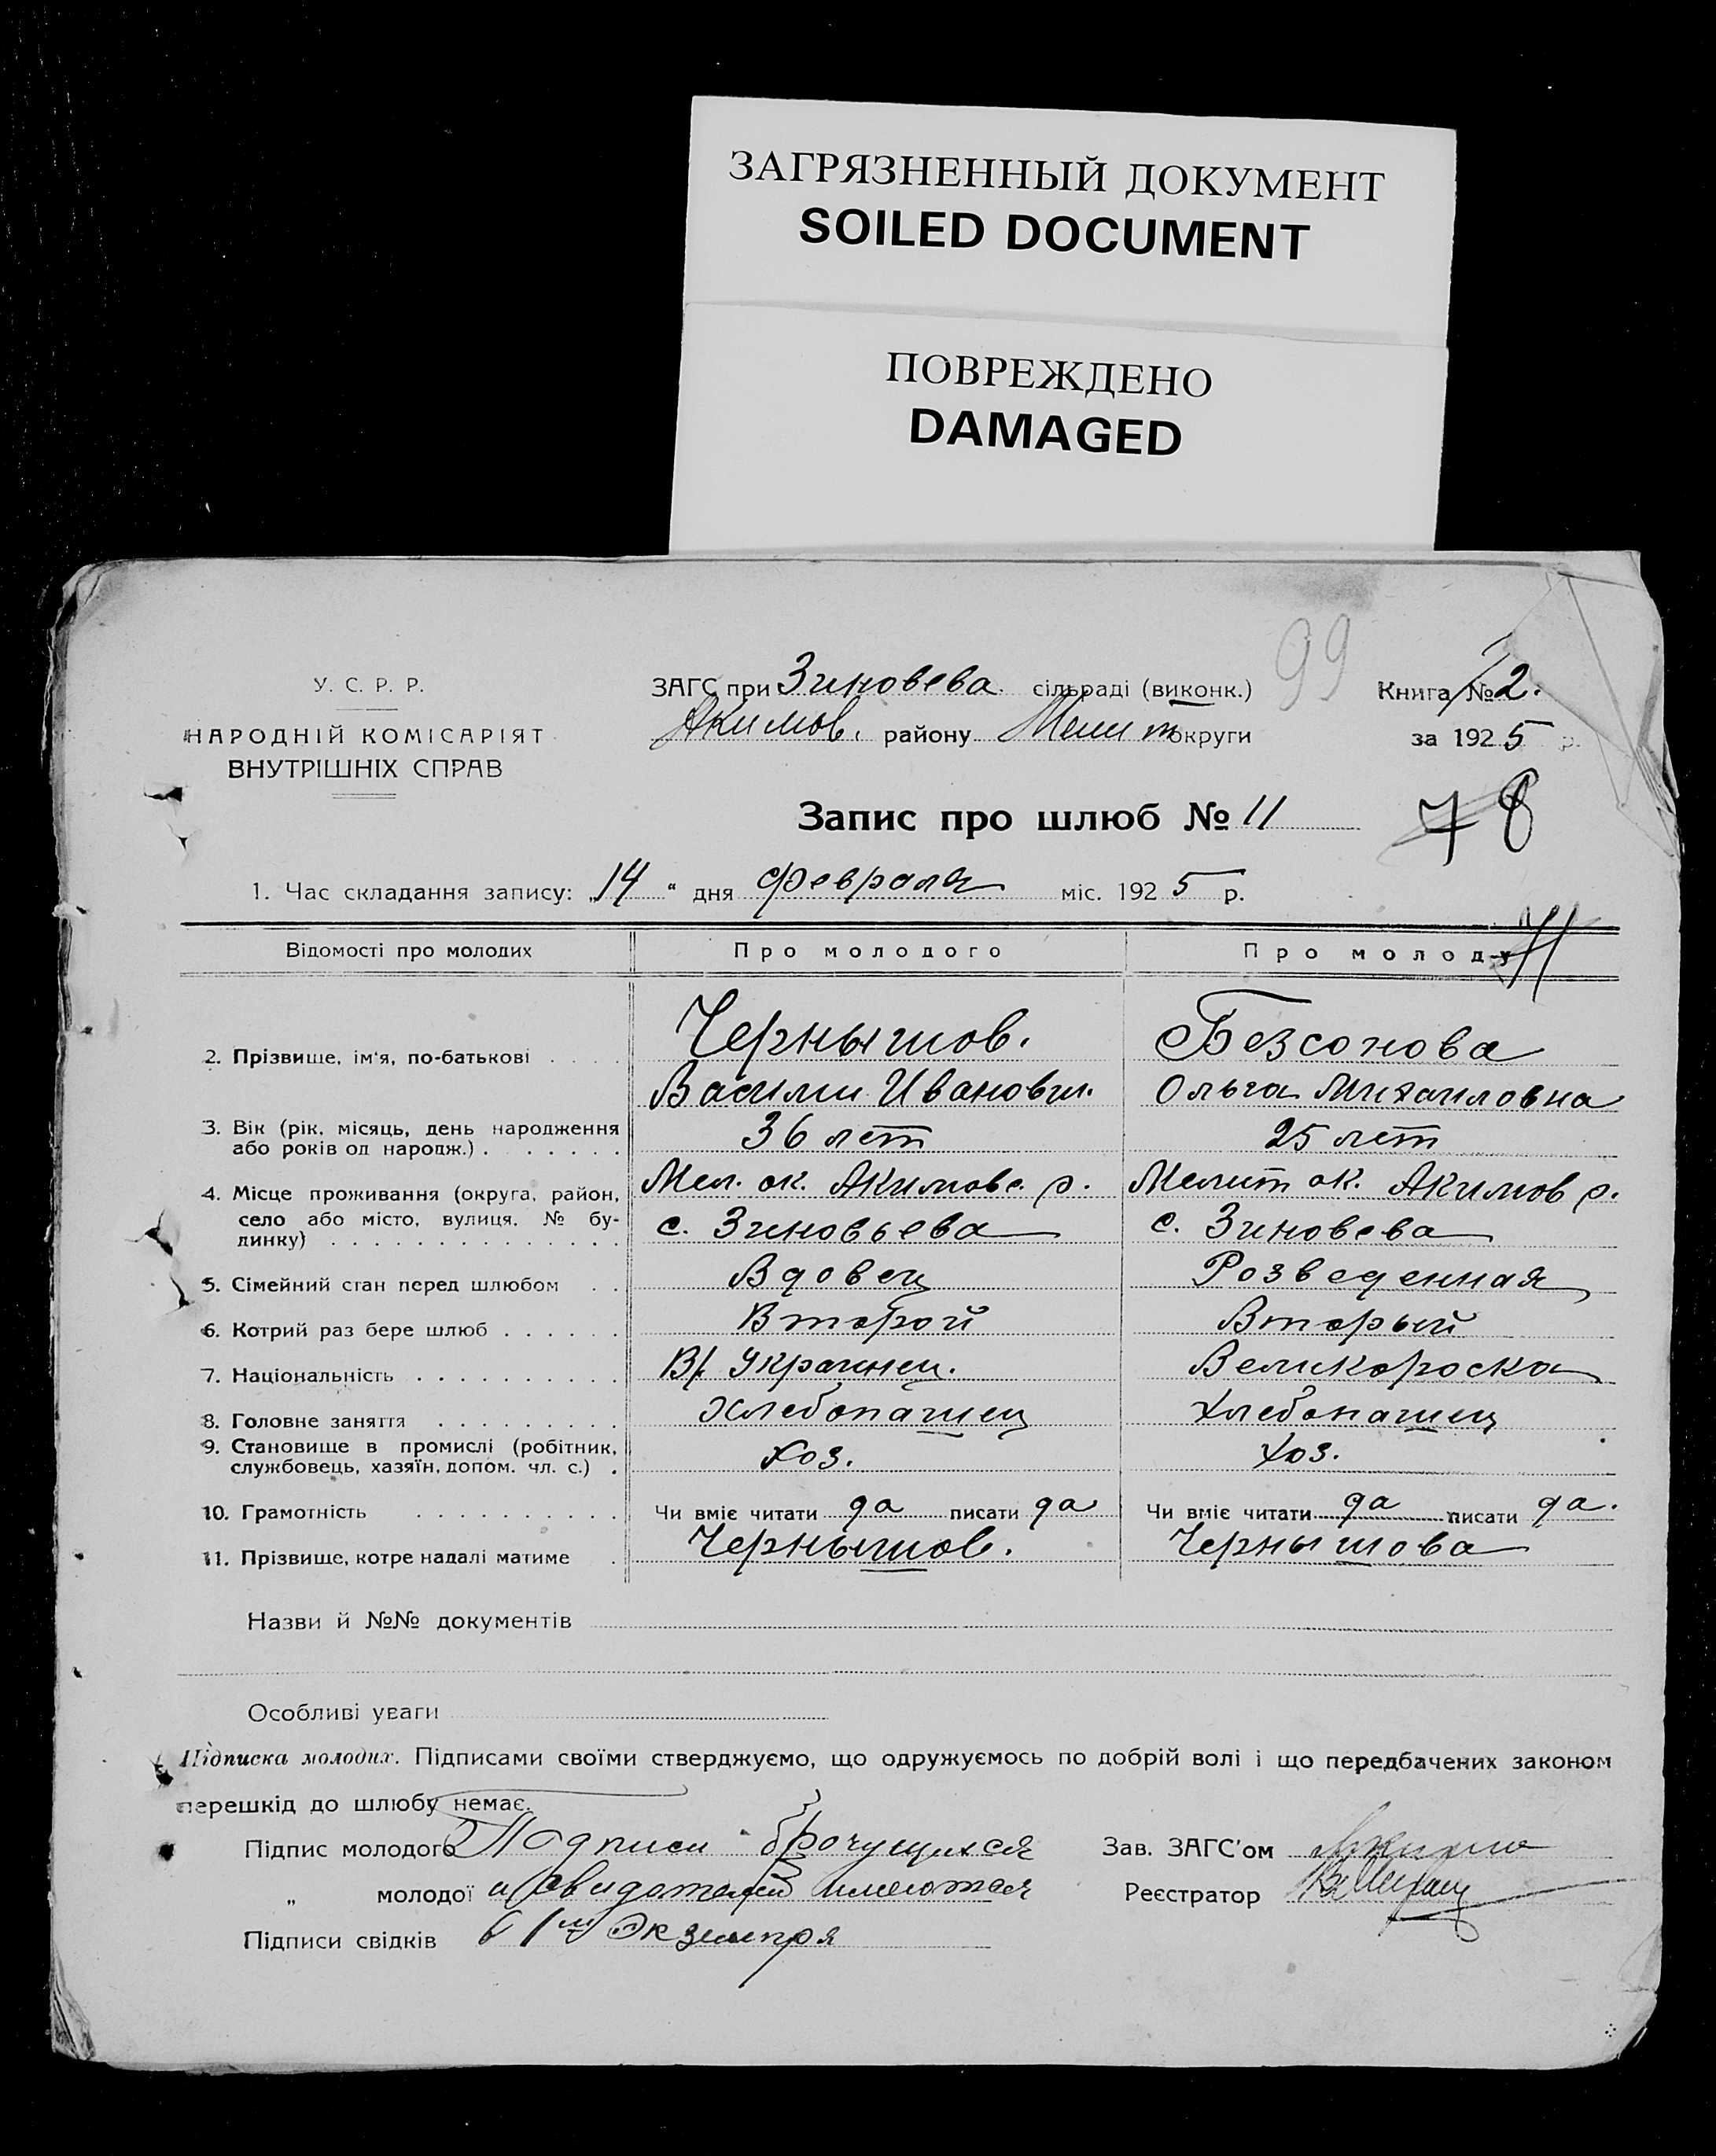 ЗАГРЯЗНЕННЫЙ ДОКУМЕНТ
SOILED DOCUMENT
ПОВРЕЖДЕНО
DAMAGED
99
У. С. Р. Р.
НАРОДНІЙ КОМІСАРІЯТ
ВНУТРІШНІХ СПРАВ
ЗАГС при Зиновева сільраді (виконк.)
Акимов. району Мелит округи
Книга № 2.
за 1925 р.
Запис про шлюб № 11
78
1. Час складання запису: „14 “ дня февраля міс. 1925 р.
Відомості про молодих Про молодого Про молоду
2. Прізвище, ім'я, по-батькові Чернышов. Безсонова
Васили Иванович. Ольга Михаиловна
3. Вік (рік, місяць, день народження 36 лет 25 лет
або років од народж.)
4. Місце проживання (округа, район, Мел. ок. Акимовс. р. Мелит ок. Акимов р.
село або місто, вулиця, № бу- с. Зиновьева с. Зиновева
динку)
5. Сімейний стан перед шлюбом Вдовец Розведенная
6. Котрий раз бере шлюб Второй Вторый
7. Національність Украинец. Великороска
8. Головне заняття Хлебопашец Хлебопашец
9. Становище в промислі (робітник, Хоз. Хоз.
службовець, хазяїн, допом. чл. с.)
10. Грамотність Чи вміє читати да писати да Чи вміє читати да писати да.
11. Прізвище, котре надалі матиме Чернышов. Чернышова
Назви й №№ документів
Особливі уваги
Підписка молодих. Підписами своїми стверджуємо, що одружуємось по добрій волі і що передбачених законом
перешкід до шлюбу немає.
Підпис молодого Подписи брочущихся Зав. ЗАГС'ом
„ молодої и свидетелей имеются Реєстратор
Підписи свідків в 1м Экземпря